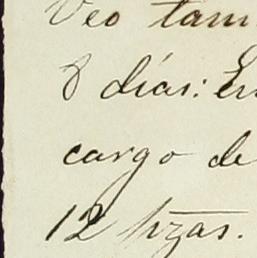 Veo tam
8 días: En
cargo de
12 pzas.